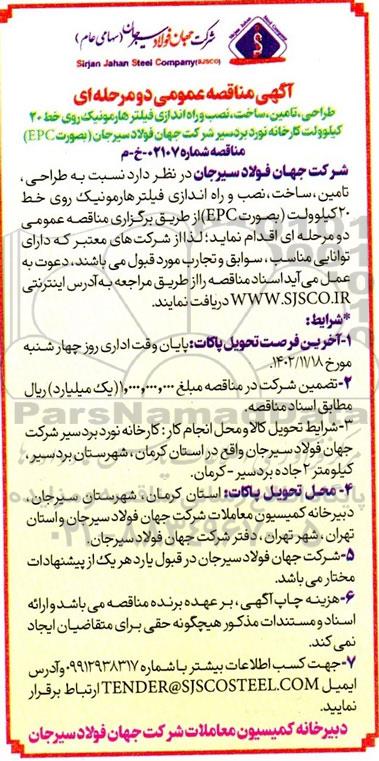 شرکت جهان فولاد سیرجان (سهامی عام)
Sirjan Jahan Steel Company(SJSCO)
آگهی مناقصه عمومی دو مرحله ای
طراحی، تامین، ساخت، نصب و راه اندازی فیلتر هارمونیک روی خط ۲۰
کیلوولت کارخانه نورد بردسیر شرکت جهان فولاد سیرجان (بصورت EPC)
مناقصه شماره ۰۲۱۰۷-خ-م
شرکت جهان فولاد سیرجان در نظر دارد نسبت به طراحی،
تامین، ساخت، نصب و راه اندازی فیلتر هارمونیک روی خط
۲۰کیلوولت (بصورت EPC)از طریق برگزاری مناقصه عمومی
دو مرحله ای اقدام نماید؛ لذا از شرکت های معتبر که دارای
توانایی مناسب، سوابق و تجارب مورد قبول می باشند، دعوت به
عمل می آید اسناد مناقصه را از طریق مراجعه به آدرس اینترنتی
WWW.SJSCO.IR دریافت نمایند.
*شرایط:
۱-آخرین فرصت تحویل پاکات: پایان وقت اداری روز چهارشنبه
مورخ ۱۴۰۲/۱۱/۱۸.
۲-تضمین شرکت در مناقصه مبلغ ۱,۰۰۰,۰۰۰,۰۰۰(یک میلیارد) ریال
مطابق اسناد مناقصه.
۳-شرایط تحویل کالا و محل انجام کار: کارخانه نورد بردسیر شرکت
جهان فولاد سیرجان واقع در استان کرمان، شهرستان بردسیر،
کیلومتر ۲ جاده بردسیر -کرمان.
۴- محل تحویل پاکات: استان کرمان، شهرستان سیرجان،
دبیرخانه کمیسیون معاملات شرکت جهان فولاد سیرجان و استان
تهران، شهر تهران، دفتر شرکت جهان فولاد سیرجان.
۵-شرکت جهان فولاد سیرجان در قبول یا رد هر یک از پیشنهادات
مختار می باشد.
۶-هزینه چاپ آگهی، بر عهده برنده مناقصه می باشد و ارائه
اسناد و مستندات مذکور هیچگونه حقی برای متقاضیان ایجاد
نمی کند.
۷-جهت کسب اطلاعات بیشتر با شماره ۰۹۹۱۲۹۳۸۳۱۷ و آدرس
ایمیل TENDER@SJSCOSTEEL.COM ارتباط برقرار
نمایید.
دبیرخانه کمیسیون معاملات شرکت جهان فولاد سیرجان